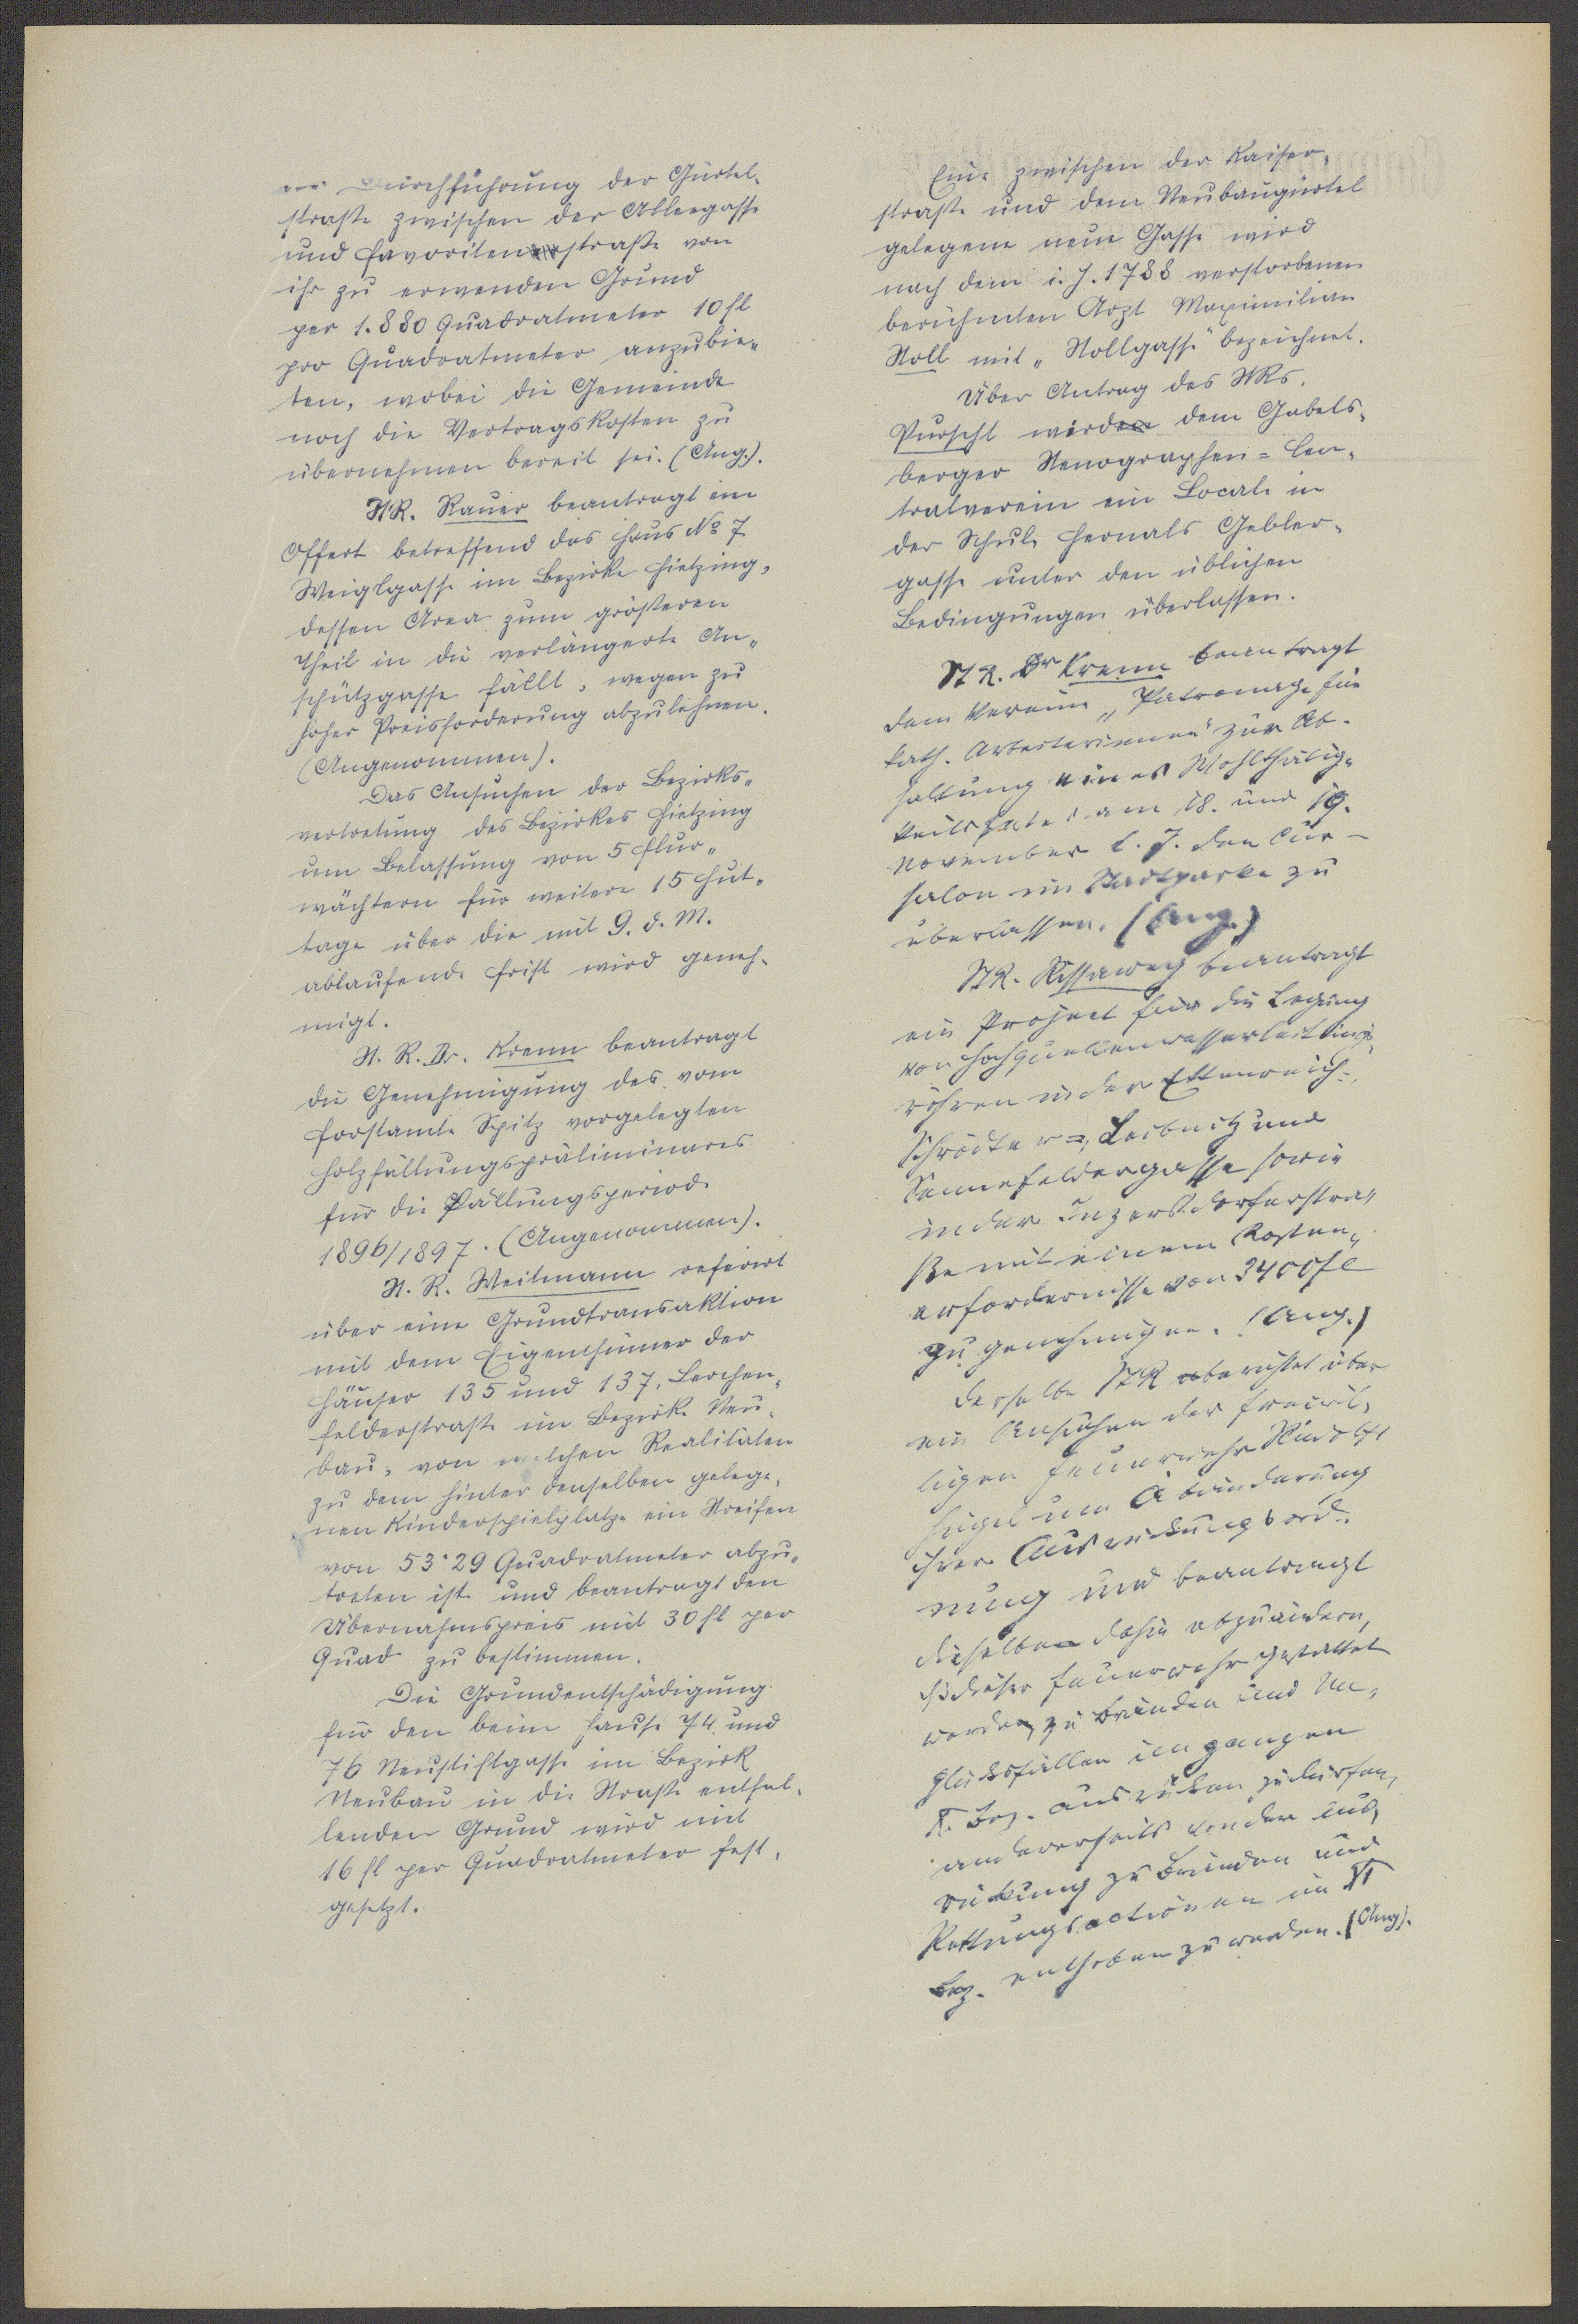 Durchführung der Gürtel-
straße zwischen der Ablergasse
und Favoritenstraße von
ihr zu erwenden Grund
per 1.880 Quadratmeter 10 fl
pro Quadratmeter anzubie-
ten, wobei die Gemeinde
noch die Vertragskosten zu
übernehmen bereit sei. (Ang.).
StR. Rauer beantragt ein
Offert betreffend das Haus No 7
Weiglgasse im Bezirke Hietzing,
dessen Area zum größeren
Theil in die verlängerte An-
schützgasse fällt, wegen zu
hoher Preisforderung abzulehnen.
(Angenommen).
Das Ansuchen der Bezirks-
vertretung des Bezirkes Hietzing
um Belassung von 5 Flur-
wächtern für weitere 15 Hut-
tage über die mit 9. d. M.
ablaufende Frist wird geneh-
migt.
St. R. Dr. Krenn beantragt
die Genehmigung des vom
Forstamte Spitz vorgelegten
Holzfällungspräliminares
für die Fällungsperiode
1896/1897. (Angenommen).
St. R. Weitmann referirt
über eine Grundtransaktion
mit dem Eigenthümer der
Häuser 135 und 137, Lerchen-
felderstraße im Bezirke Neu-
bau, von welchen Realitäten
zu dem hinter denselben gelege-
nen Kinderspielplatze ein Streifen
von 53·29 Quadratmeter abzu-
treten ist und beantragt den
Übernahmspreis mit 30 fl per
Quad zu bestimmen.
Die Grundentschädigung
für den beim Hause 74 und
76 Neustiftgasse im Bezirk
Neubau in die Straße entfal-
lenden Grund wird mit
16 fl per Quadratmeter fest-
gesetzt.
Eine zwischen der Kaiser-
straße und dem Neubaugürtel
gelegene neue Gasse wird
nach dem i. J. 1788 verstorbenen
berühmten Arzt Maximilian
Stoll mit "Stollgasse" bezeichnet.
Über Antrag des StRs.
Purscht wird dem Gabels-
berger Stenographen=Cen-
tralverein ein Locale in
der Schule Hernals Gebler-
gasse unter den üblichen
Bedingungen überlassen.
StR. Dr Krenn beantragt
dem Vereine "Patronage für
kath. Arbeiterinnen" zur Ab-
haltung eines Wohlthätig-
keitsfestes am 18. und 19.
November l. J. den Cur-
salon im Stadtparke zu
überlassen. (Ang.)
StR. Rissaweg beantragt
ein Project für die Legung
von Hochquellenwasserleitungs-
röhren in der Ettenreich-
Schrötter=, Leibnitz und
Sennefeldergasse sowie
in der Inzersdorferstra-
ße mit einem Kosten-
erfordernisse von 3400 fl
zu genehmigen. (Ang.)
Derselbe StR berichtet über
ein Ansuchen der freiwil-
ligen Feuerwehr Rudolfs
hügel um Abänderung
ihrer Ausrückungsord-
nung und beantragt
dieselbe dahin abzuändern,
dß dieser Feuerwehr gestattet
werde, zu Bränden und Un-
glücksfällen im ganzen
X. Bez. ausrücken zu dürfen,
andererseits von der Aus-
rückung zu Bränden und
Rettungsactionen im XI
Bez. enthoben zu werden. (Ang).